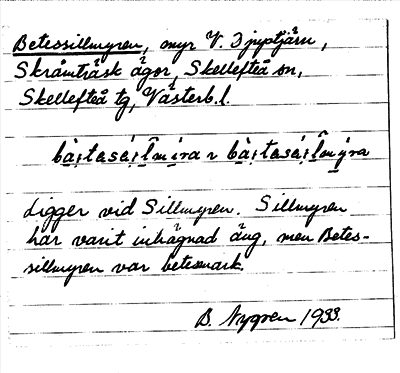 Betessillmyren, myr V. Djuptjärn,
Skråmträsk ägor, Skellefteå sn,
Skellefteå tg, Västerb. l.
Ligger vid Sillmyren. Sillmyren
har varit inhägnad äng, men Betes-
sillmyren var betesmark.
B. Nygren 1933.